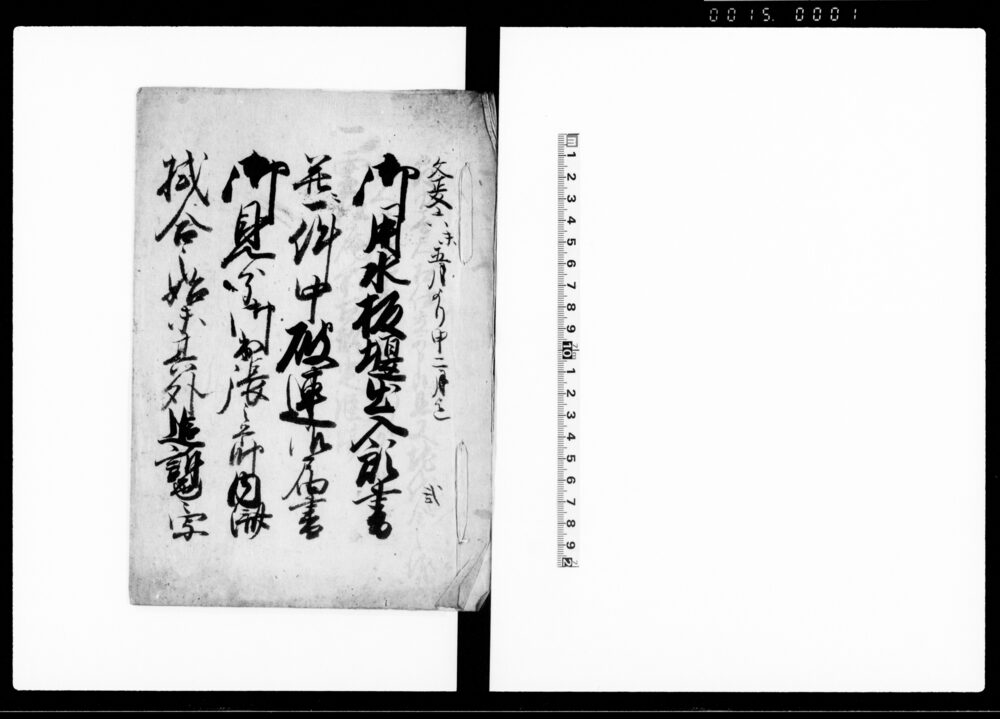 0015. 0001
文政六未五月より申二月迄
御用水板堰出入願書
并一件中破連御届書
御見分御出張之節内済
拭合始末其外追訴写
弐
1 2 3 4 5 6 7 8 9 10 1 2 3 4 5 6 7 8 9 2